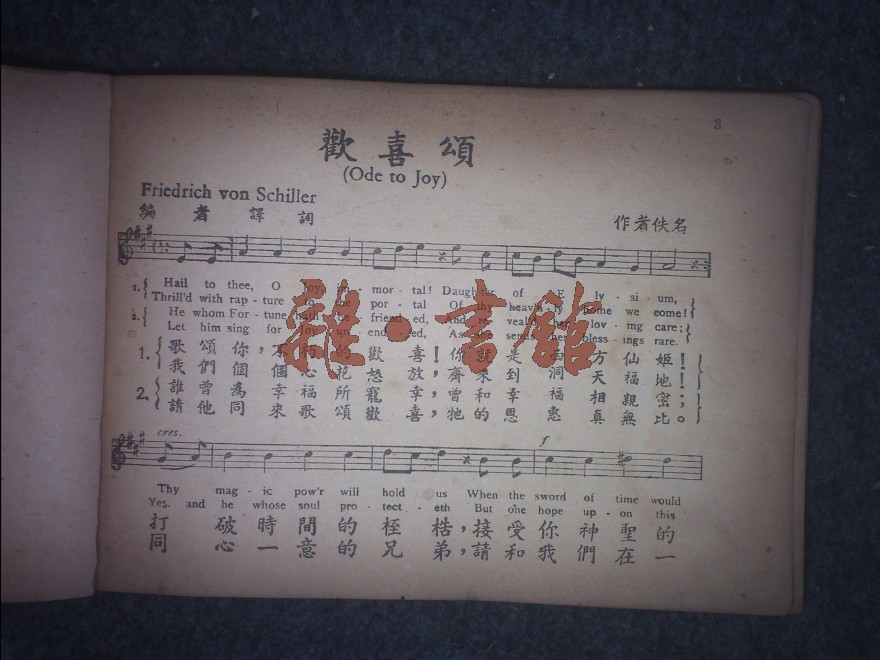 8
歡喜頌
(Ode to Joy)
Friedrich von Schiller
編者譯詞
作者佚名
1. Hail to thee, O Joy im-mor-tal! Daughter of E-ly-sium,
Thrill'd with rap-ture to the por-tal Of thy heav'n-ly home we come!
2. He whom For-tune hath be-friend-ed, And re-veal'd her lov-ing care;
Let him sing for Joy un-end-ed, As she sends her bless-ings rare.
1. 歌頌你,不朽的歡喜!你就是西方仙姬!
我們個個心花怒放,齊來到洞天福地!
2. 誰曾為幸福所寵幸,曾和幸福相親密;
請他同來歌頌歡喜,曾牠的恩惠真無比。
雜·言館
cres.
f
Thy mag-ic pow'r will hold us When the sword of time would
Yes, and he whose soul pro-tect-eth But one hope up-on this
打破時間的桎梏,接受你神聖的
同心一意的兄弟,請和我們在一